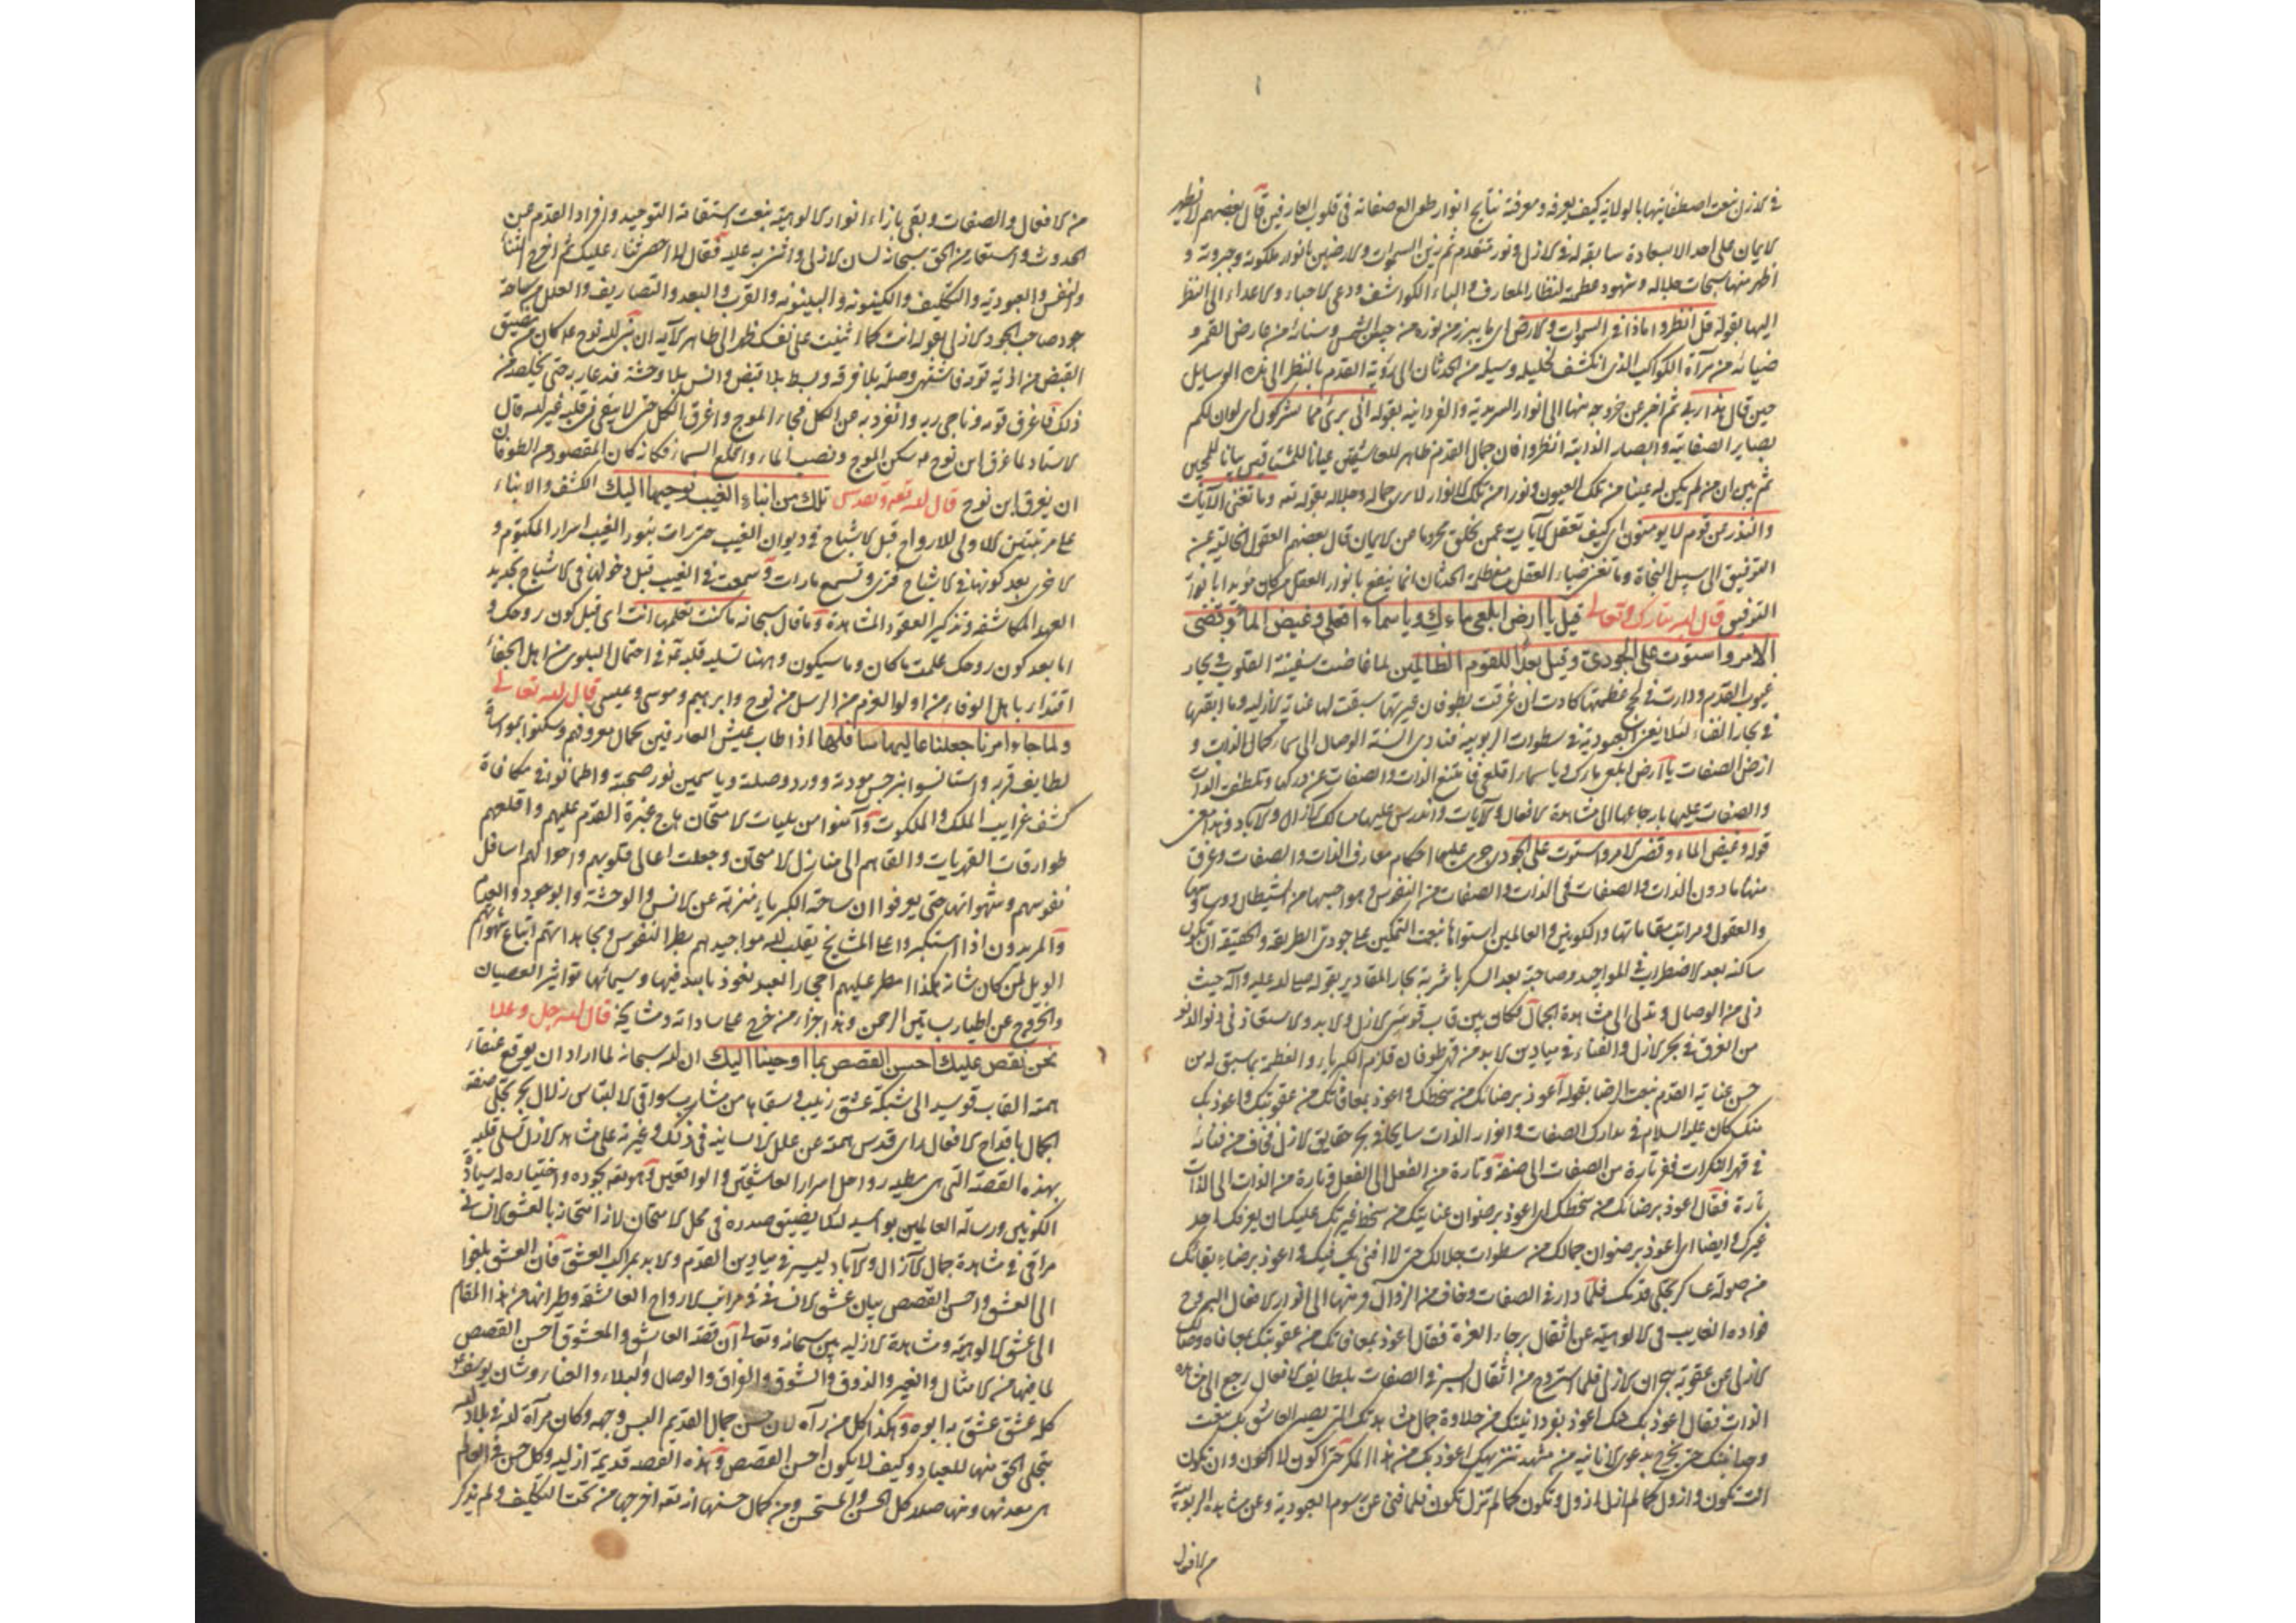 في الازل بنعت اصطفائيتها بالولاية كيف يعرفه ومعرفة نتايج انوار طوالع صفاته في قلوب العارفين قال بعضهم لا يظهر
الايمان على احد الا بسعادة سابقة له في الازل ونور متقدم ثم زين السموات والارضين بانوار ملكوته وجبروته و
اظهر منها سبحات جلاله وشهود عظمته لنظار المعارف والباء الكواشف ودعى الاحباء والاعداء الى النظر
اليها بقوله قل انظروا ماذا في السموات والارض اى ما يبرز من نوره من جبين الشمس وسنائه من عارض القمر و
ضيائه من مرآة الكواكب الذى انكشف لخليله وسيله من الحدثان الى رؤية القدم بالنظر الى تلك الوسايل
حين قال هذا ربى ثم اخبر عن خروجه منها الى انوار السرمدية والفردانية بقوله انى برئ مما تشركون اى لو ان لكم
بصاير الصفاتية وابصار الذاتية انظروا فان جمال القدم ظاهر للعاشقين عيانا للمشتاقين بيانا للمحبين
ثم بين ان من لم يكن له عينا من تلك العيون ونورا من تلك الانوار لا يرى جماله وجلاله بقوله تعه وما تغنى الآيات
والنذر عن قوم لا يومنون اى كيف تعقل الآيات عمن خلق محروما من الايمان قال بعضهم العقول الخالية عن
التوفيق الى سبيل النجاة وما تغنى ضياء العقل مع ظلمة الخذلان انما ينفع بانوار العقل من كان مؤيدا بانوار
التوفيق قال الله تبارك وتعالى قيل يا ارض ابلعى ماءك ويا سماء اقلعى وغيض الماء وقضى
الامر واستوت على الجودى وقيل بعدا للقوم الظالمين لما فاضت سفينة القلوب في بحار
غيوب القدم ودارت في لجج عظمتها كادت ان غرقت بطوفان غيرتها سبقت لها عناية الازلية وما ابقتها
في بحار الفناء لئلا يغرن العبودية في سطوات الربوبية فنادى السنة الوصال الى سماء كمال الذات و
ارض الصفات يا ارض ابلعى ماءك ويا سماء اقلعى فامتنع الذات والصفات عن دركها وتلطفت الذات
والصفات عليها بارجاعها الى مشاهدة الافعال والآيات واندرس عليها مسالك الازال والآباد وهذا معنى
قوله وغيض الماء وقضى الامر واستوت على الجودى جرى عليها احكام معارف الذات والصفات وغرق
منها ما دون الذات والصفات في الذات والصفات من النفوس وهواجسها من الشيطان ووساوسها
والعقول ومراتب مقاماتها والكونين والعالمين استواها بنعت التمكين على جودى الطريقة والحقيقة ان تكون
ساكنة بعد الاضطراب في المواجيد وصاحية بعد السكر باشربة بحار المقادير بقوله صلى الله عليه وآله حيث
دنى من الوصال وتدلى الى مشاهدة الجمال فكان بين قاب قوسي الازل والابد والاستقاذ في ونو الدنو
من الغرق في بحر الازل والفناء في ميادين الابد من قهر طوفان قلزم الكبرياء والعظمة بما سبق له من
حسن عناية القدم بنعت الرضا بقوله اعوذ برضاك من سخطك واعوذ بمعافاتك من عقوبتك واعوذ بك
منك كان عليه السلام في مدارك الصفات وانوار الذات سايحا في بحر حقايق الازل فخاف من فنائه
في قهر النكرات ففر تارة من الصفات الى صفة وتارة من الفعل الى الفعل وتارة من الذات الى الذات
تارة فقال اعوذ برضاك من سخطك اى اعوذ برضوان عنايتك من سخط غيرتك عليك ان يعرفك احد
غيرك وايضا اى اعوذ برضوان جمالك من سطوات جلالك حتى لا افنى بك فيك واعوذ برضاء بقائك
من صولة عساكر تجلى قدمك فلما دار في الصفات وخاف من الزوال فر منها الى انوار الافعال ليروح
فواده الغايب في الالوهية عن اثقال برحاء العزة فقال اعوذ بمعافاتك من عقوبتك بمعافاة وصالك
الازلى عن عقوبة هجران الازلى فلما استروح من اثقال السير في الصفات بلطايف الافعال رجع الى مشاهدة
الذات فقال اعوذ بك منك اعوذ بفردانيتك من حلاوة جمال مشاهدتك التى يصير العاشق بك بنعت
وحدانيتك حتى يخرج بدعوى الانانية من مشهد تنزيهك اعوذ بك من هذا المكر حتى اكون لا اكون وان تكون
انت تكون وازول كما لم ازل ازول وتكون كما لم تزل تكون فلما فنى عن رسوم العبودية وعن مشاهدة الربوبية
من الافعال
من الافعال والصفات وبقى بازاء انوار الالوهية بنعت استقامة التوحيد وافراد القدم عن
الحدوث واستعار من الحق سبحانه لسان الازلى واثنى به عليه فقال لا احصى ثناء عليك ثم اخرج الثناء
والنفس والعبودية والتكليف والكينونة والبينونة والقرب والبعد والتصاريف والعلل من ساحة
جود صاحب الجود الازلى بقوله انت كما اثنيت على نفسك ظهر الى ظاهر الآية ان نبى الله نوح عم كان من ضيق
القبض من اذية قومه فاشتهى وصلة بلا فرقة وبسط بلا قبض وانس بلا وحشة فدعا ربه حتى يخلصه من
ذلك فاغرق قومه وناجى ربه وانفرد به عن الكل فجاء الموج واغرق الكل حتى لا يبقى في قلبه غير الله قال
الاستاد لما غرق ابن نوح عم سكن الموج ونضب الماء واقلع السماء فكانه كان المقصود من الطوفان
ان يغرق ابن نوح قال الله تعه وتقدس تلك من انباء الغيب نوحيها اليك الكشف والانباء
على مرتبتين الاولى للارواح قبل الاشباح في ديوان الغيب حتى رات بنور الغيب اسرار المكتوم و
الاخرى بعد كونها في الاشباح فترى وتسمع ما رات وسمعت في الغيب قبل دخولها في الاشباح تجديد
العهد المكاشفة وتذكير العقود المشاهدة وما قال سبحانه ما كنت تعلمها انت اى قبل كون روحك و
اما بعد كون روحك علمت ما كان وما سيكون وههنا تسلية قلبه عم في احتمال البلوى من اهل الجفاء
اقتداء باهل الوفاء من اولوا العزم من الرسل من نوح وابرهيم وموسى وعيسى قال الله تعالى
ولما جاء امرنا جعلنا عاليها سافلها اذا طاب عيش العارفين بجمال معروفهم وسكنوا بموانسة
لطايف قربه واستانسوا بنرجس مودته وورد وصلته وياسمين نور صحبته واطمانوا في مكافاة
كشف غرايب الملك والملكوت وآمنوا من بليات الامتحان هاج غيرة القدم عليهم واقلعهم
طوارقات القهريات والقاهم الى منازل الامتحان وجعلت اعالى قلوبهم واحوالهم اسافل
نفوسهم وشهواتها حتى يعرفوا ان ساحة الكبرياء منزهة عن الانس والوحشة والوجود والعدم
والمريدون اذا استكبروا على المشايخ يقلب الله مواجيدهم ببطر النفوس ومجاهداتهم اتباع شهواتهم
الويل لمن كان شانه هكذا امطر عليهم احجار البعد نعوذ بالله فيها وسيماتها تواثير العصيان
والخروج عن اطيار بساتين الرحمن وهذا جزاء من خرج على ساداته ومشايخه قال الله جل وعلا
نحن نقص عليك احسن القصص بما اوحينا اليك ان الله سبحانه لما اراد ان يوقع عنقاء
همته القاب قوسيه الى شبكة عشق زينب وسقاها من مشارب سواقى الالتباس زلال بحر تجلى صفة
الجمال باقداح الافعال راى قدس همته عن علل الانسانية في ذلك وغيرته على مشاهد الازل تسلى قلبه
بهذه القصة التى هى مطية رواحل اسرار العاشقين والوامقين وآمنه بجوده واختياره له سيادة
الكونين ورسالة العالمين بواسيه لئلا يضيق صدره في محل الامتحان لان امتحانه بالعشق الانسانى
مراقى في مشاهدة جمال الآزال والآباد ليسير في ميادين القدم والابد بمراكب العشق فان العشق بلغوا
الى العشق واحسن القصص بيان عشق الانسانى في مراتب الارواح العاشقة وطيرانها من هذا المقام
الى عشق الالوهية ومشاهدة الازلية بين سبحانه وتعالى ان قصة العاشق والمعشوق احسن القصص
لما فيها من الامثال والعبر والذوق والشوق والفراق والوصال والبلاء والعناء وشان يوسف عم
كله عشق عشق به ابوه وهكذا كل من رآه لان حسن جمال القديم البس وجهه وكان مرآة الله في بلاد الله
يتجلى الحق منها للعباد وكيف لا يكون احسن القصص وهذه القصة قديمة ازلية وكل حسن في العالم
هى معدنها ومنها صلا كل الحسن والمستحسن ومن كمال حسنها انه تعه اخرجها من تحت التكليف ولم يذكر